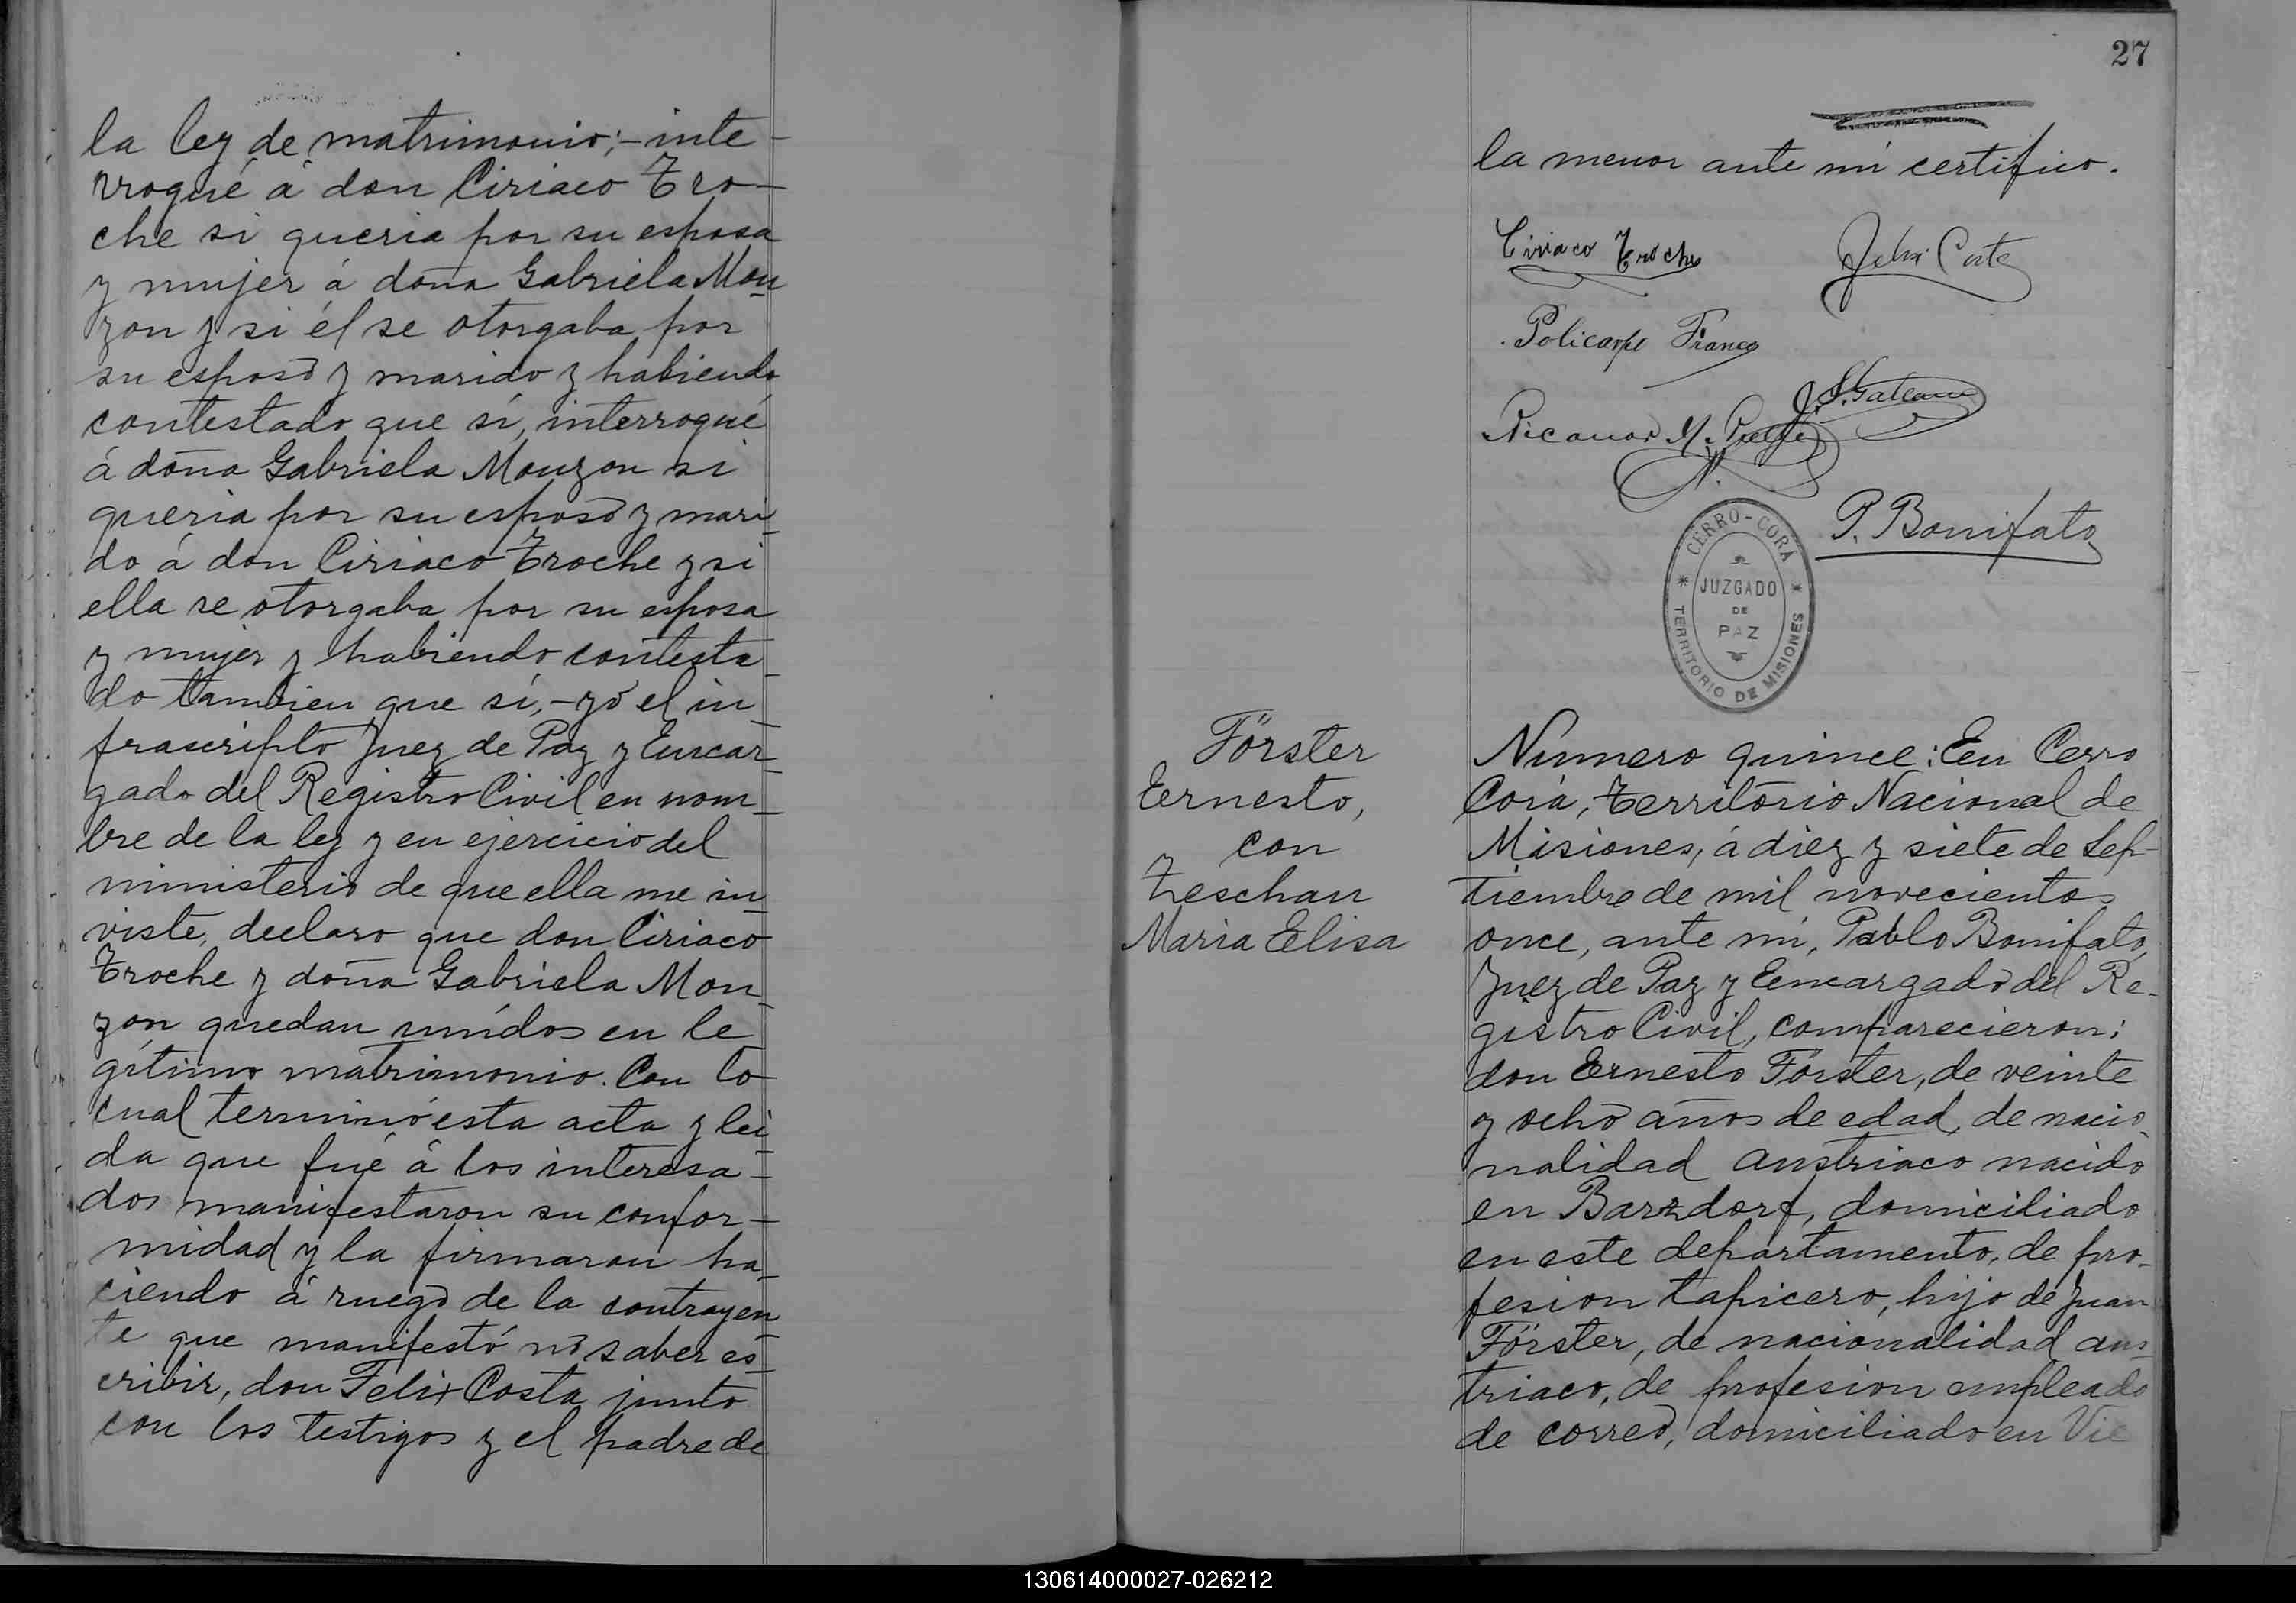 la ley de matrimonio;- inte-
rrogué á don Ciriaco Tro-
che si queria por su esposa
y mujer á doña Gabriela Mon-
zon y si él se otorgaba por
su esposo y marido y habiendo
contestado que sí, interrogué
á doña Gabriela Monzon si
queria por su esposo y mari-
do á don Ciriaco Troche y si
ella se otorgaba por su esposa
y mujer y habiendo contesta-
do tambien que sí,- yo el in-
frascripto Juez de Paz y Encar-
gado del Registro Civil en nom-
bre de la ley y en ejercicio del
ministerio de que ella me in-
viste, declaro que don Ciriaco
Troche y doña Gabriela Mon-
zon quedan unidos en le-
gítimo matrimonio. Con lo
cual terminó esta acta y lei-
da que fué á los interesa-
dos manifestaron su confor-
midad y la firmaron ha-
ciendo á ruego de la contrayen-
te que manifestó no saber es-
cribir, don Felix Costa junto
con los testigos y el padre de
27
la menor ante mí certifico.
Ciriaco Troche
Felix Costa
Policarpo Franco
Nicanor M.
P. Bonifato
CERRO-CORÁ
JUZGADO
DE
PAZ
TERRITORIO DE MISIONES
Förster
Ernesto,
con
Zeschan
Maria Elisa
Número quince: En Cerro
Corá, Territorio Nacional de
Misiones, á diez y siete de Sep-
tiembre de mil novecientos
once, ante mí, Pablo Bonifato,
Juez de Paz y Encargado del Re-
gistro Civil, comparecieron:
don Ernesto Förster, de veinte
y ocho años de edad, de nacio-
nalidad austriaco nacido
en Barzdorf, domiciliado
en este departamento, de pro-
fesion tapicero, hijo de Juan
Förster, de nacionalidad aus-
triaco, de profesion empleado
de correo, domiciliado en Vie
130614000027-026212